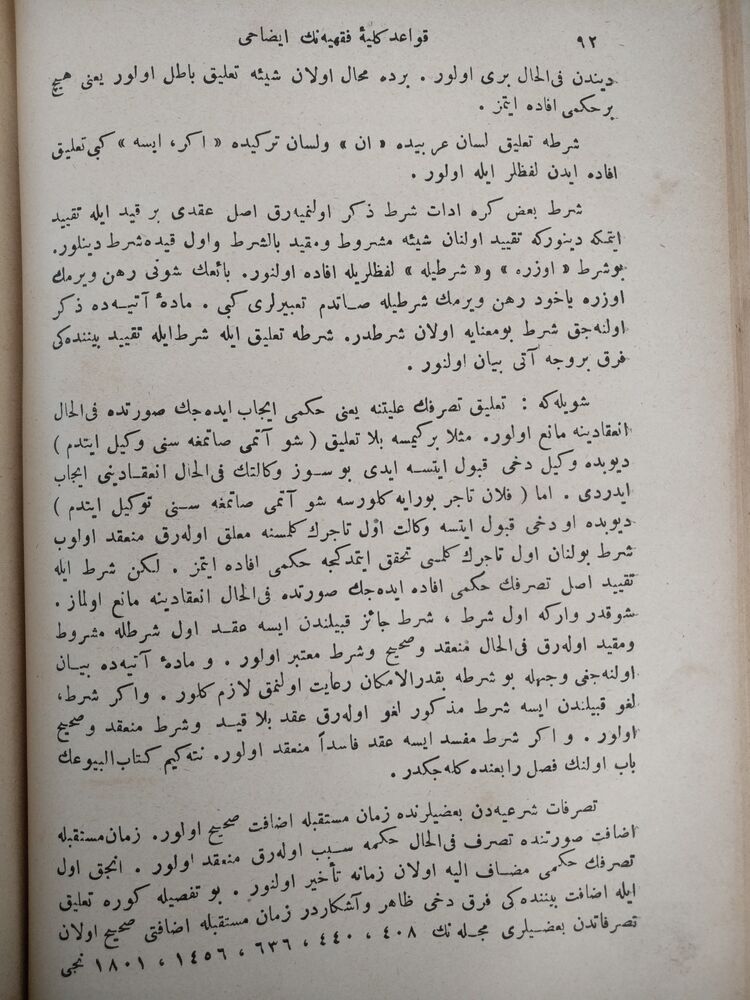 ٩٢
قواعد كليۀ فقهيه‌نك ايضاحى
ديندن فى‌الحال برى اولور . برده محال اولان شيئه تعليق باطل اولور يعنى هيچ
برحكمى افاده ايتمز .
شرطه تعليق لسان عربيده « ان » ولسان تركيده « اكر، ايسه » كبى تعليق
افاده ايدن لفظلر ايله اولور .
شرط بعض كره ادات شرط ذكر اولنميه‌رق اصل عقدى بر قيد ايله تقييد
ايتمكه دينوركه تقييد اولنان شيئه مشروط ومقيد بالشرط واول قيده شرط دينلور.
بوشرط « اوزره » و« شرطيله » لفظلريله افاده اولنور. بائعك شونى رهن ويرمك
اوزره ياخود رهن ويرمك شرطيله صاتدم تعبيرلرى كبى . مادۀ آتيه‌ده ذكر
اولنه‌جق شرط بومعنايه اولان شرطدر. شرطه تعليق ايله شرط ايله تقييد بيننده‌كى
فرق بروجه آتى بيان اولنور .
شويله‌كه : تعليق تصرفك عليتنه يعنى حكمى ايجاب ايده‌جك صورتده فى‌الحال
انعقادينه مانع اولور. مثلا بركيمسه بلا تعليق ( شو آتمى صاتمغه سنى وكيل ايتدم )
ديوبده وكيل دخى قبول ايتسه ايدى بو سوز وكالتك فى‌الحال انعقادينى ايجاب
ايدردى . اما ( فلان تاجر بورايه كلورسه شو آتمى صاتمغه سنى توكيل ايتدم )
ديوبده او دخى قبول ايتسه وكالت اول تاجرك كلمسنه معلق اوله‌رق منعقد اولوب
شرط بولنان اول تاجرك كلمسى تحقق ايتدكجه حكمى افاده ايتمز . لكن شرط ايله
تقييد اصل تصرفك حكمى افاده ايده‌جك صورتده فى‌الحال انعقادينه مانع اولماز .
شوقدر واركه اول شرط ، شرط جائز قبيلندن ايسه عقد اول شرطله مشروط
ومقيد اوله‌رق فى‌الحال منعقد وصحيح وشرط معتبر اولور . و مادۀ آتيه‌ده بيان
اولنه‌جغى وجهله بو شرطه بقدرالامكان رعايت اولنمق لازم كلور . واكر شرط،
لغو قبيلندن ايسه شرط مذكور لغو اوله‌رق عقد بلا قيد وشرط منعقد وصحيح
اولور . و اكر شرط مفسد ايسه عقد فاسداً منعقد اولور. نته‌كيم كتاب البيوعك
باب اولنك فصل رابعنده كله‌جكدر .
تصرفات شرعيه‌دن بعضيلرنده زمان مستقبله اضافت صحيح اولور. زمان‌مستقبله
اضافت صورتنده تصرف فى‌الحال حكمه سبب اوله‌رق منعقد اولور . انجق اول
تصرفك حكمى مضاف اليه اولان زمانه تأخير اولنور . بو تفصيله كوره تعليق
ايله اضافت بيننده‌كى فرق دخى ظاهر وآشكاردر زمان مستقبله اضافتى صحيح اولان
تصرفاتدن بعضيلرى مجله‌نك ٤٠٨ ، ٤٤٠ ، ٦٣٦ ، ١٤٥٦ ، ١٨٠١ نجى